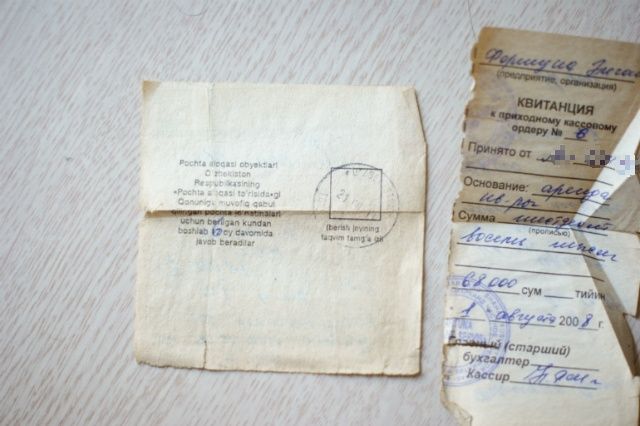 Pochta aloqasi obyektlari
O'zbekiston
Respublikasining
«Pochta aloqasi to'risida»gi
Qonuniga muvofiq qabul
qilingan pochta jo'natmalari
uchun berilgan kundan
boshlab 12 oy davomida
javob beradilar
(berish joyning
taqvim tamg'a izi)
Формула
(предприятие, организация)
КВИТАНЦИЯ
к приходному кассовому
ордеру № 6
Принято от
Основание: аренда
Сумма шестьдесят
(прописью)
восемь тысяч
68000 сум тийин
1 августа 2008 г.
(старший)
бухгалтер
Кассир